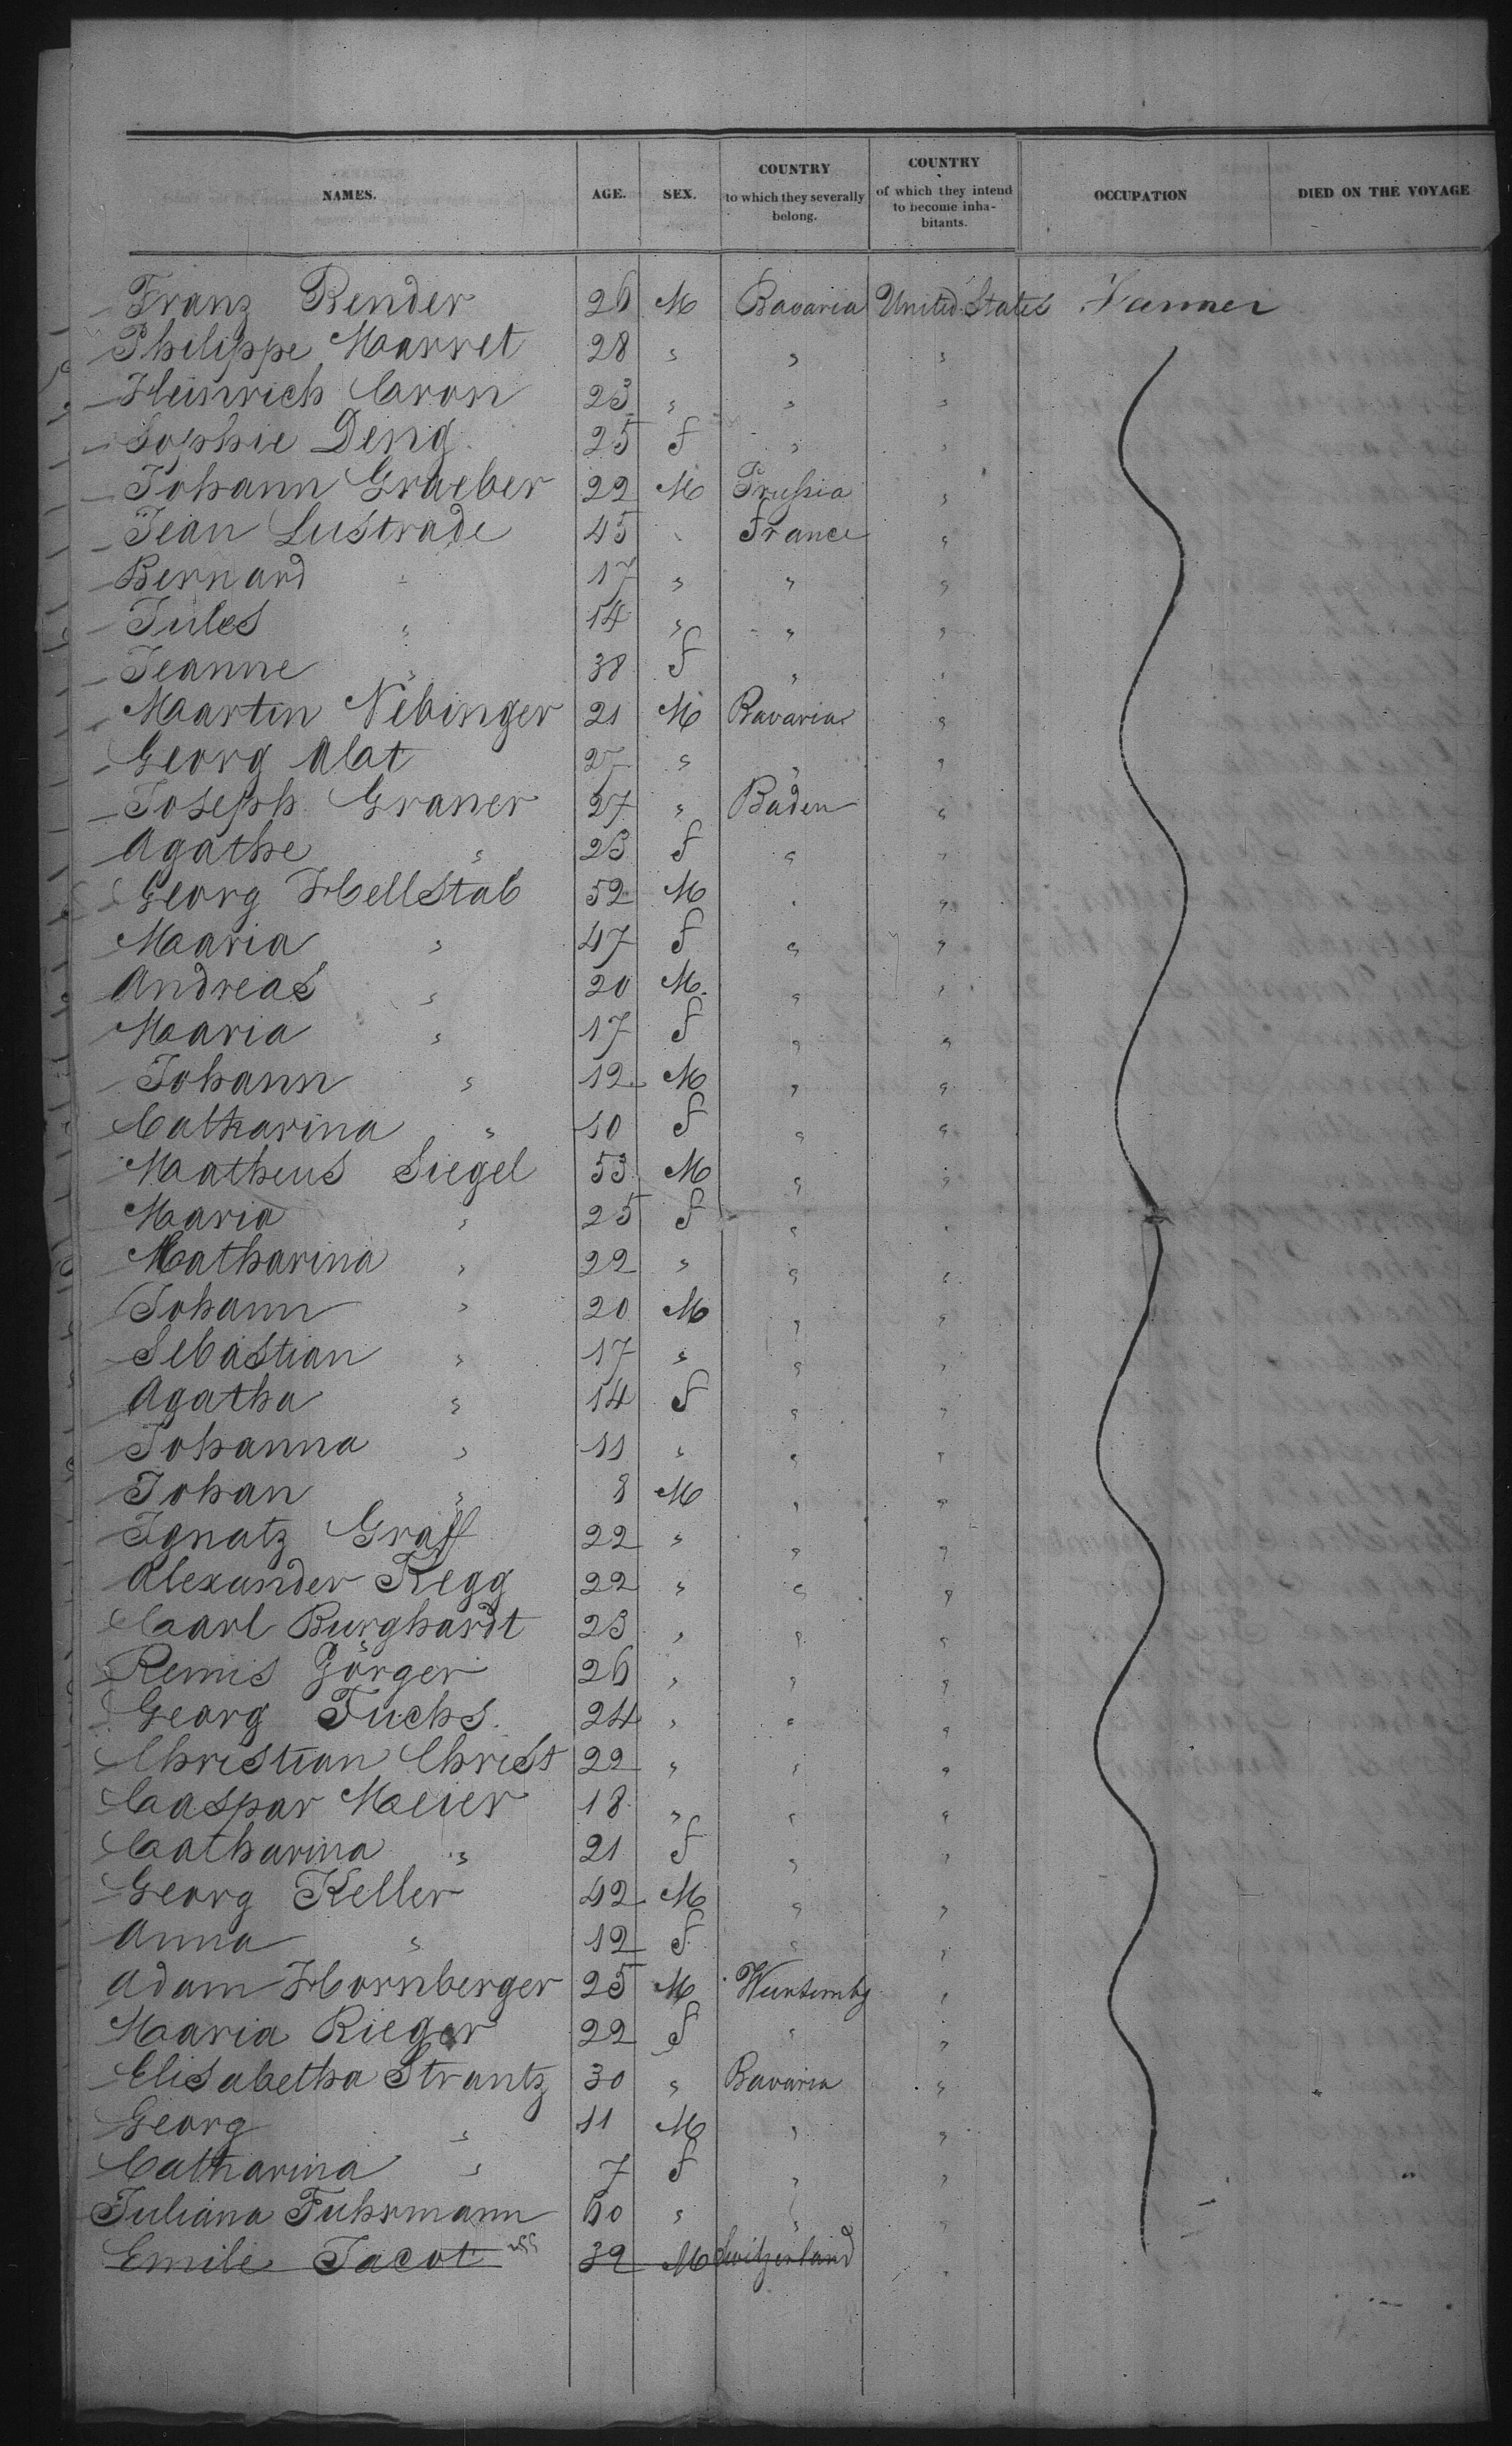 NAMES. AGE. SEX. COUNTRY to which they severally belong. COUNTRY of which they intend to become inhabitants. OCCUPATION DIED ON THE VOYAGE
Franz Render 26 M Bavaria United States Farmer
Philippe Marret 28 " " "
Heinrich Caron 23 " " "
Sophie Deng 25 f " "
Johann Graeber 22 M Prussia "
Jean Lustrade 45 " France "
Bernard " 17 " " "
Jules " 14 " " "
Jeanne " 38 f " "
Martin Nebinger 21 M Bavaria "
Georg Abat 27 " " "
Joseph Graner 27 " Baden "
Agathe " 23 f " "
Georg Hellstab 52 M " "
Maria " 47 f " "
Andreas " 20 M. " "
Maria " 17 f " "
Johann " 12 M " "
Catharina " 10 f " "
Matheus Siegel 53 M " "
Maria " 25 f " "
Catharina " 22 " " "
Johann " 20 M " "
Sebastian " 17 " " "
Agatha " 14 f " "
Johanna " 11 " " "
Johan " 8 M " "
Ignatz Graff 22 " " "
Alexander Regg 22 " " "
Carl Burghardt 23 " " "
Remis Görger 26 " " "
Georg Fuchs. 24 " " "
Christian Christ 22 " " "
Caspar Meier 18 " " "
Catharina " 21 f " "
Georg Keller 42 M " "
Anna " 12 f " "
Adam Hornberger 25 M Wurtembg "
Maria Rieger 22 f " "
Elisabetha Strantz 30 " Bavaria "
Georg " 11 M " "
Catharina " 7 f " "
Juliana Fuhrmann 60 " " "
Emile Jacot 39 M Switzerland "